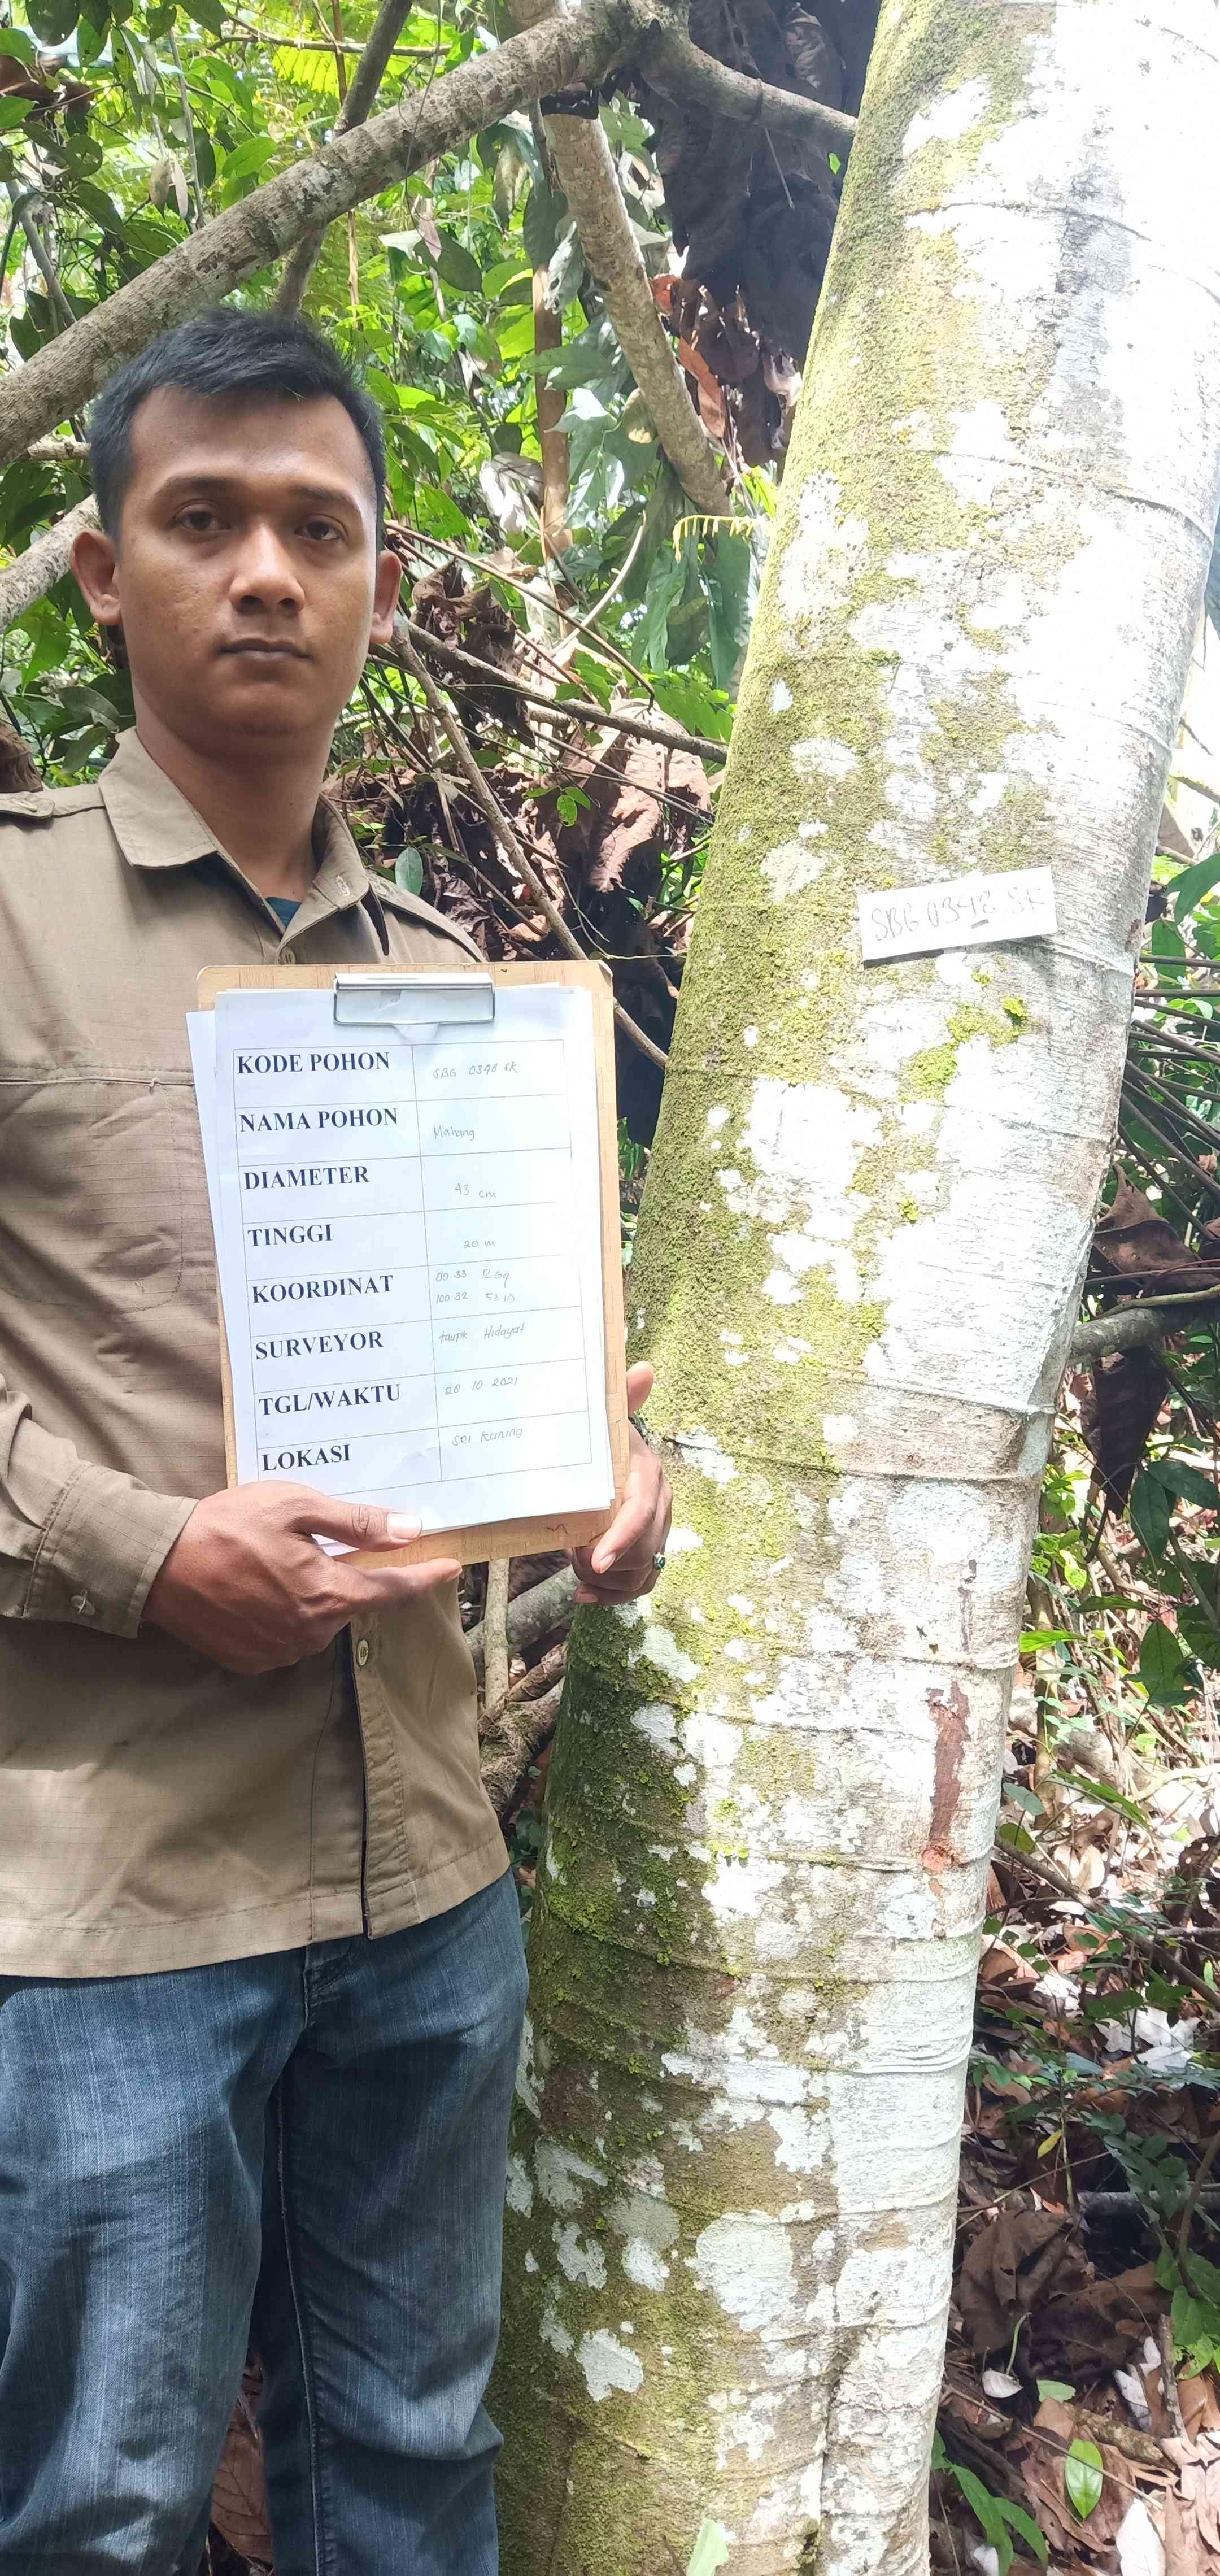 KODE POHON SBG 0348 SK
NAMA POHON Mahang
DIAMETER 43 cm
TINGGI 20 m
KOORDINAT 00 33
100 32 53 10
SURVEYOR taupik Hidayat
TGL/WAKTU 28 10 2021
LOKASI sei kuning
SBG 0348 SK